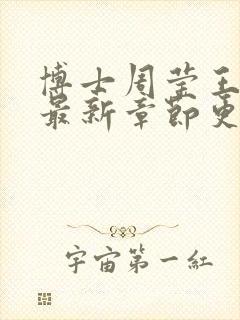 博士周莹王
最新章節更
宇宙第一紅